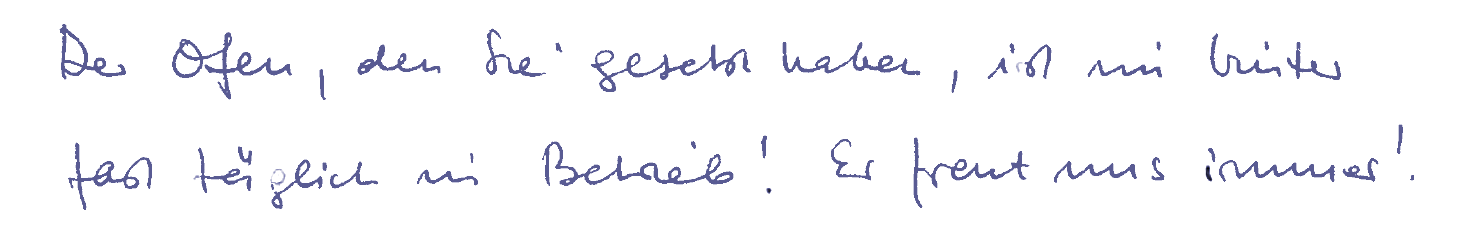 Der Ofen, den Sie gesetzt haben, ist im Winter
fast täglich in Betrieb! Er freut uns immer!